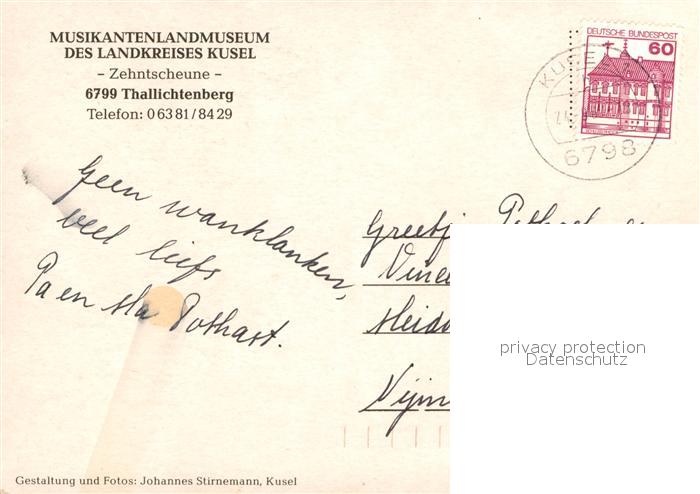 MUSIKANTENLANDMUSEUM
DES LANDKREISES KUSEL
– Zehntscheune –
6799 Thallichtenberg
Telefon: 0 63 81 / 84 29
DEUTSCHE BUNDESPOST
60
KUSEL
6798
Geen wanklanken,
veel liefs
Pa en Ma Pothast.
Greetje Pothast
Vince
Heid
Nijm
privacy protection
Datenschutz
Gestaltung und Fotos: Johannes Stirnemann, Kusel